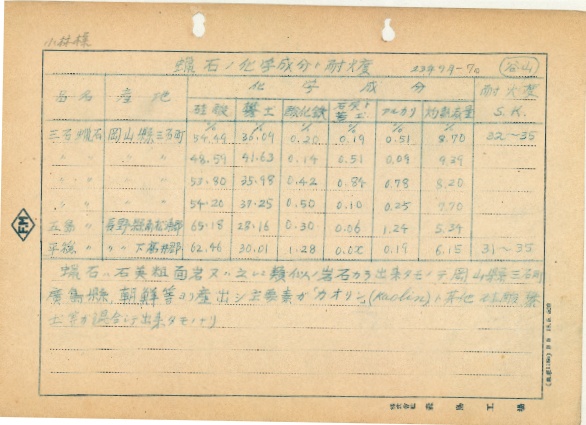 小林様
蝋石ノ化学成分ト耐火度 23年7月-7日 谷山
品名 産地 化学成分 耐火度
硅酸 礬土 酸化鉄 石灰ト苦土 アルカリ 灼熱減量 S.K.
三石蝋石 岡山縣三石町 54.44 36.09 0.20 0.19 0.51 8.70 32~35
〃 〃 〃 〃 48.59 41.63 0.14 0.51 0.09 9.39
〃 〃 〃 〃 53.80 35.98 0.42 0.84 0.78 8.20
〃 〃 54.20 37.25 0.50 0.10 0.25 7.70
〃 長野縣 65.18 28.16 0.30 0.06 1.24 5.39
〃 〃 〃 62.46 30.01 1.28 0.19 6.15 31~35
蝋石ハ石英粗面岩又ハ之レニ類似ノ岩石カラ出来タモノデ岡山縣三石町
廣島縣、朝鮮等ヨリ産出シ主要素ガ「カオリン」(Kaolin)ト其他
土等ガ混合シテ出来タモノナリ
FM
株式会社 工場